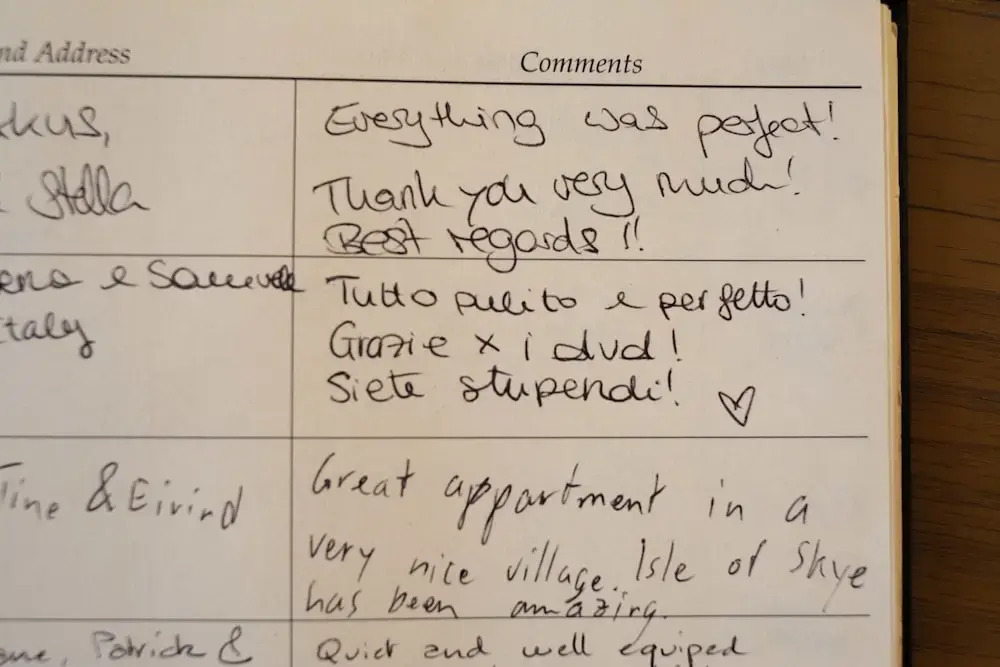 nd Address Comments
kus, Everything was perfect!
Stella Thank you very much!
Best regards !!
e Samuele Tutto pulito e perfetto!
Italy Grazie x i dvd!
Siete stupendi! ♡
Tine & Eivind Great appartment in a
very nice village. Isle of Skye
has been amazing.
Patrick & Quiet and well equiped